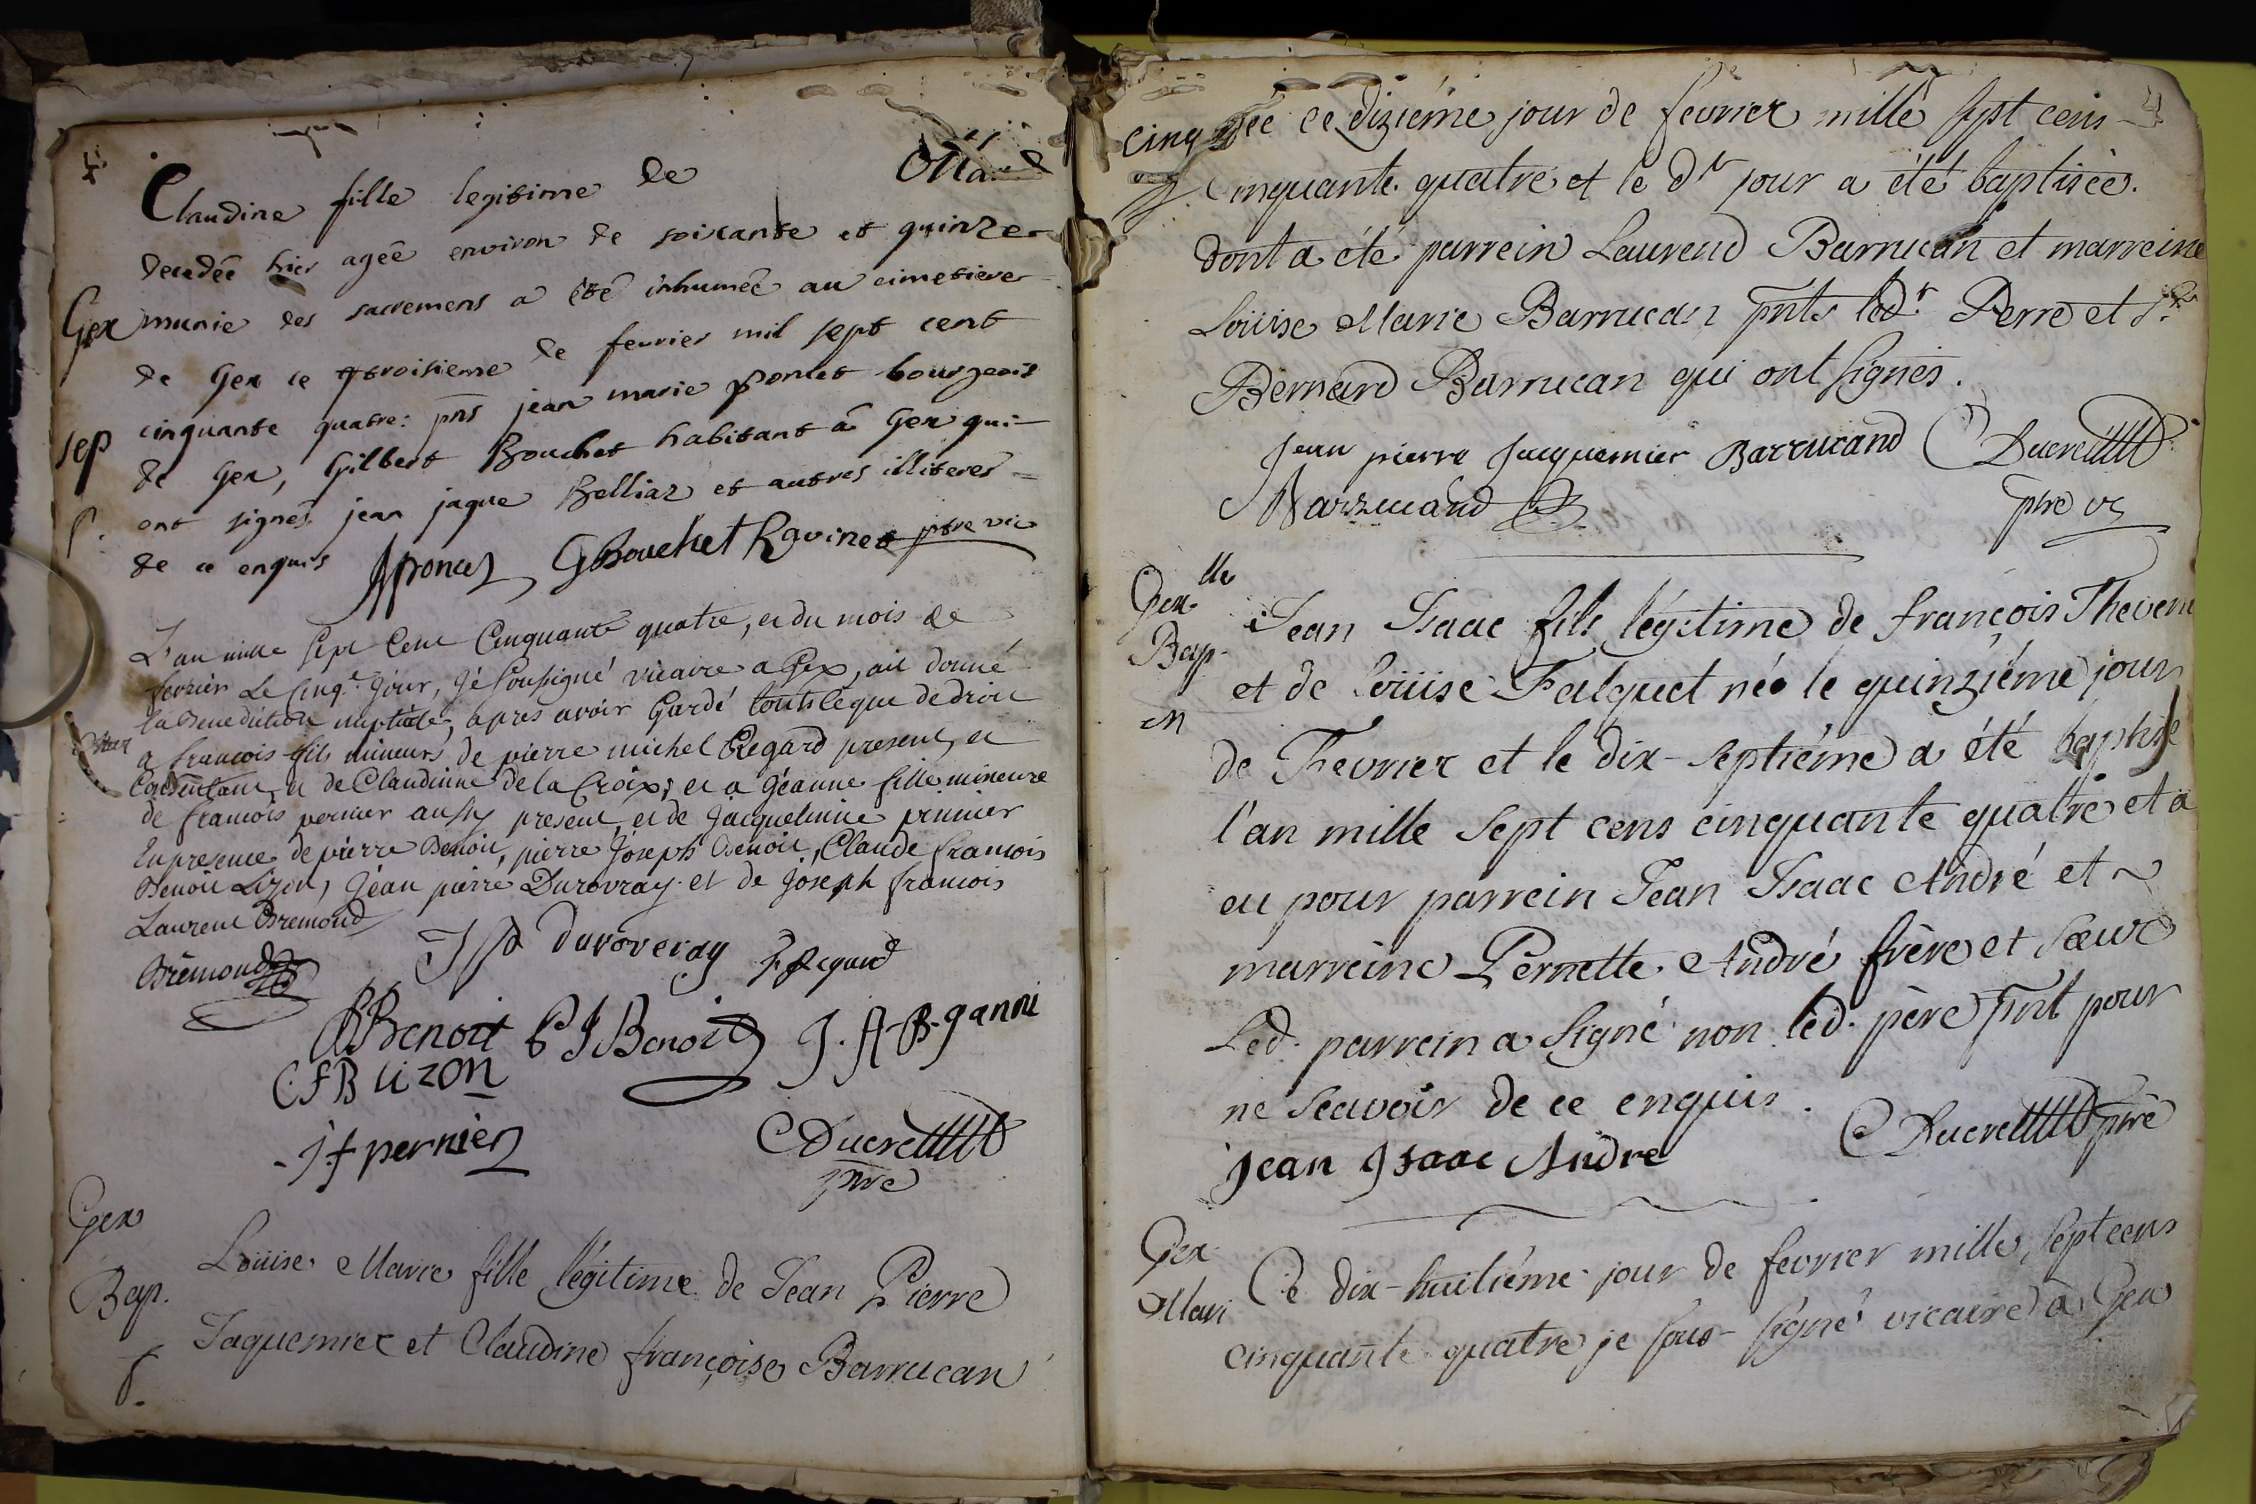 4
Claudine fille legitime de
decedée hier agée environ de soixante et quinze
Gex munie des sacremens a été inhumée au cimetiere
de Gex ce troisieme de fevrier mil sept cent
cinquante quatre: pns jean marie poncet bourgeois
Sep
de Gex, Gilbert Bouchet habitant à Gex qui
f. ont signés jean jaque Belliaz et autres illiteres
de ce enquis
Aponcet GBouchet Ravinet ptre vic
L'an mille sept cent Cinquante quatre, et du mois de
fevrier Le Cinq.e Jour, Jé soussigné vicaire a Gex, ait donné
la Benediction nuptiale, apres avoir Gardé touts le que de droit
Mar
a francois fils mineurs de pierre michel Regard present, et
Consentant, et de Claudinne de la Croix; et a Géanne fille mineure
de francois pernier aussy present, et de Jacquelinne prunier
En presence de pierre Benoit, pierre Joseph Benoit, Claude francois
Benoit Lizon, Jéan pierre Durovray et de Joseph francois
Laurent Bremond
Brémond
JP duroveray f regard
PBenoit P J Benoit J. A. B. janni
CFB Lizon
J f pernier
CDucret
ptre
Gex
Bap.
f.
Loüise Marie fille légitime de Jean Pierre
Jaquemier et Claudine françoise Barrucan
4
née ce dixiéme jour de fevrier mille sept cens
cinq
cinquante quatre et le dr jour a été baptisée.
dont a été parrein Laurend Barrucan et marreine
Loüise Marie Barrucan pnts led.r Perre et s.r
Bernard Barrucan qui ont signés.
Jean pierre Jacquemier Barrucand CDucret
Barrucand
ptre vic
Gex
lle
Bap.
m
Jean Isaac fils légitime de françois Theveni
et de Loüise Falquet né le quinziéme jour
de Fevrier et le dix-septiéme a été baptisé
l'an mille sept cens cinquante quatre et a
eu pour parrein Jean Isaac André et ~
marreine Pernette André frère et sœur
Led. parrein a signé non led. père pnt pour
ne scavoir de ce enquis.
jean Isaac André
CDucret ptre
Gex
Mari
Ce dix-huitiéme jour de fevrier mille sept cens
cinquante quatre je sous-signé vicaire à Gex